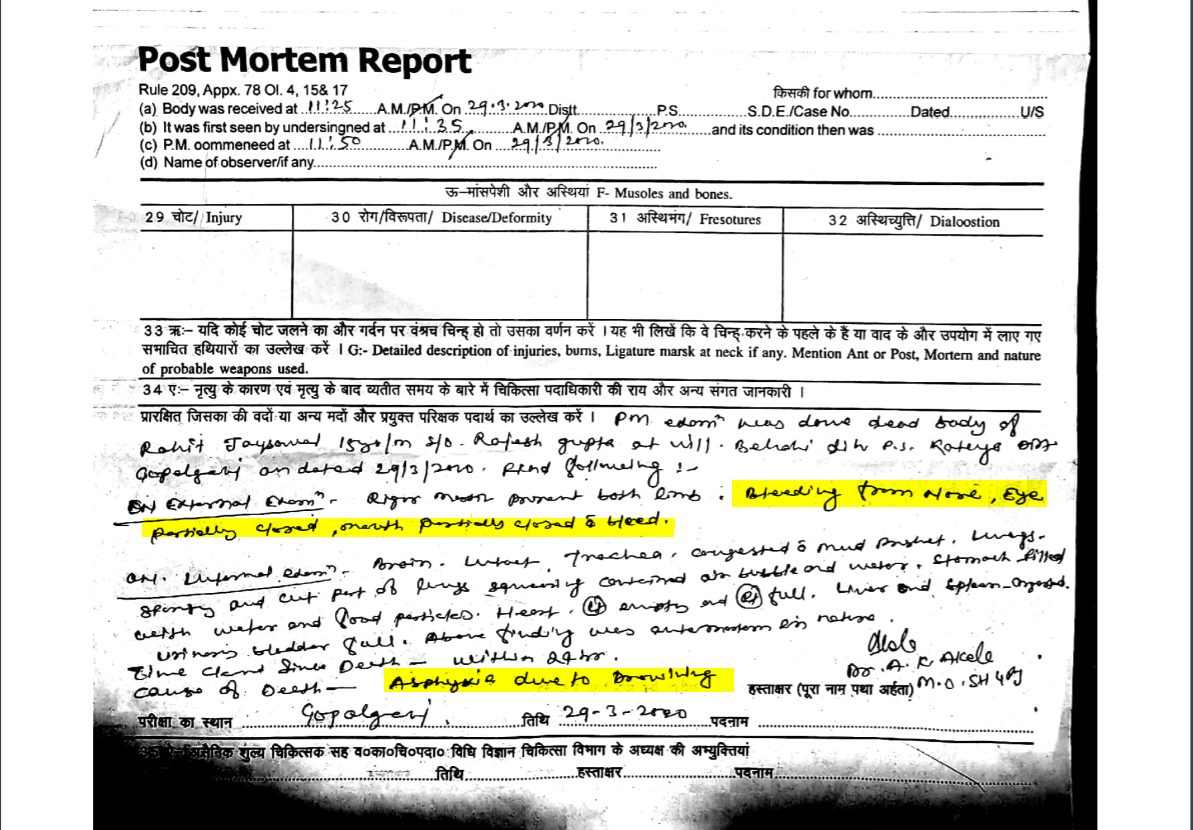 Post Mortem Report
Rule 209, Appx. 78 Ol. 4, 15& 17 किसकी for whom
(a) Body was received at 11:25 A.M./P.M. On 29.3.2020 Distt. P.S. S.D.E./Case No. Dated U/S
(b) It was first seen by undersingned at 11:35 A.M./P.M. On 29/3/2020 and its condition then was
(c) P.M. oommeneed at 11:50 A.M./P.M. On 29/3/2020.
(d) Name of observer/if any
ऊ-मांसपेशी और अस्थियां F- Musoles and bones.
29 चोट/ Injury 30 रोग/विरूपता/ Disease/Deformity 31 अस्थिमंग/ Fresotures 32 अस्थिच्युत्ति/ Dialoostion
33 ऋः– यदि कोई चोट जलने का और गर्दन पर वंश्रच चिन्ह हो तो उसका वर्णन करें । यह भी लिखें कि वे चिन्ह करने के पहले के हैं या वाद के और उपयोग में लाए गए
समाचित हथियारों का उल्लेख करें । G:- Detailed description of injuries, burns, Ligature marsk at neck if any. Mention Ant or Post, Mortem and nature
of probable weapons used.
34 एः– नृत्यु के कारण एवं मृत्यु के बाद व्यतीत समय के बारे में चिकित्सा पदाधिकारी की राय और अन्य संगत जानकारी ।
प्रारक्षित जिसका की वदों या अन्य मदों और प्रयुक्त परिक्षक पदार्थ का उल्लेख करें । PM examn was done dead body of
Rohit Jaysawal 15yrs/m S/o. Rajesh gupta at vill. Belahi dih P.S. Kateya
Gopalganj on dated 29/3/2020. Find following :-
On External Examn - Rigor present both limb. Bleeding from Nose, Eye
partially closed, mouth partially closed & bleed.
On Internal examn - Brain - Intact, Trachea, congested & mud Lungs -
spongy and cut part of lungs squeezing contained air bubble and water. Stomach filled
with water and food particles. Heart. (Lt) empty and (Rt) full. Liver and Spleen -
urinary bladder full. Above finding was antemortem in nature.
Time Since Death - within 24 hr.
Cause of Death - Asphyxia due to Drowning
Dr. A. K. Akela
हस्ताक्षर (पूरा नाम पथा अर्हता) M.O. SH
परीक्षा का स्थान Gopalganj. तिथि 29-3-2020 पदनाम
शुल्य चिकित्सक सह व०का०चि०पदा० विधि विज्ञान चिकित्सा विभाग के अध्यक्ष की अभ्युक्तियां
तिथि हस्ताक्षर पदनाम